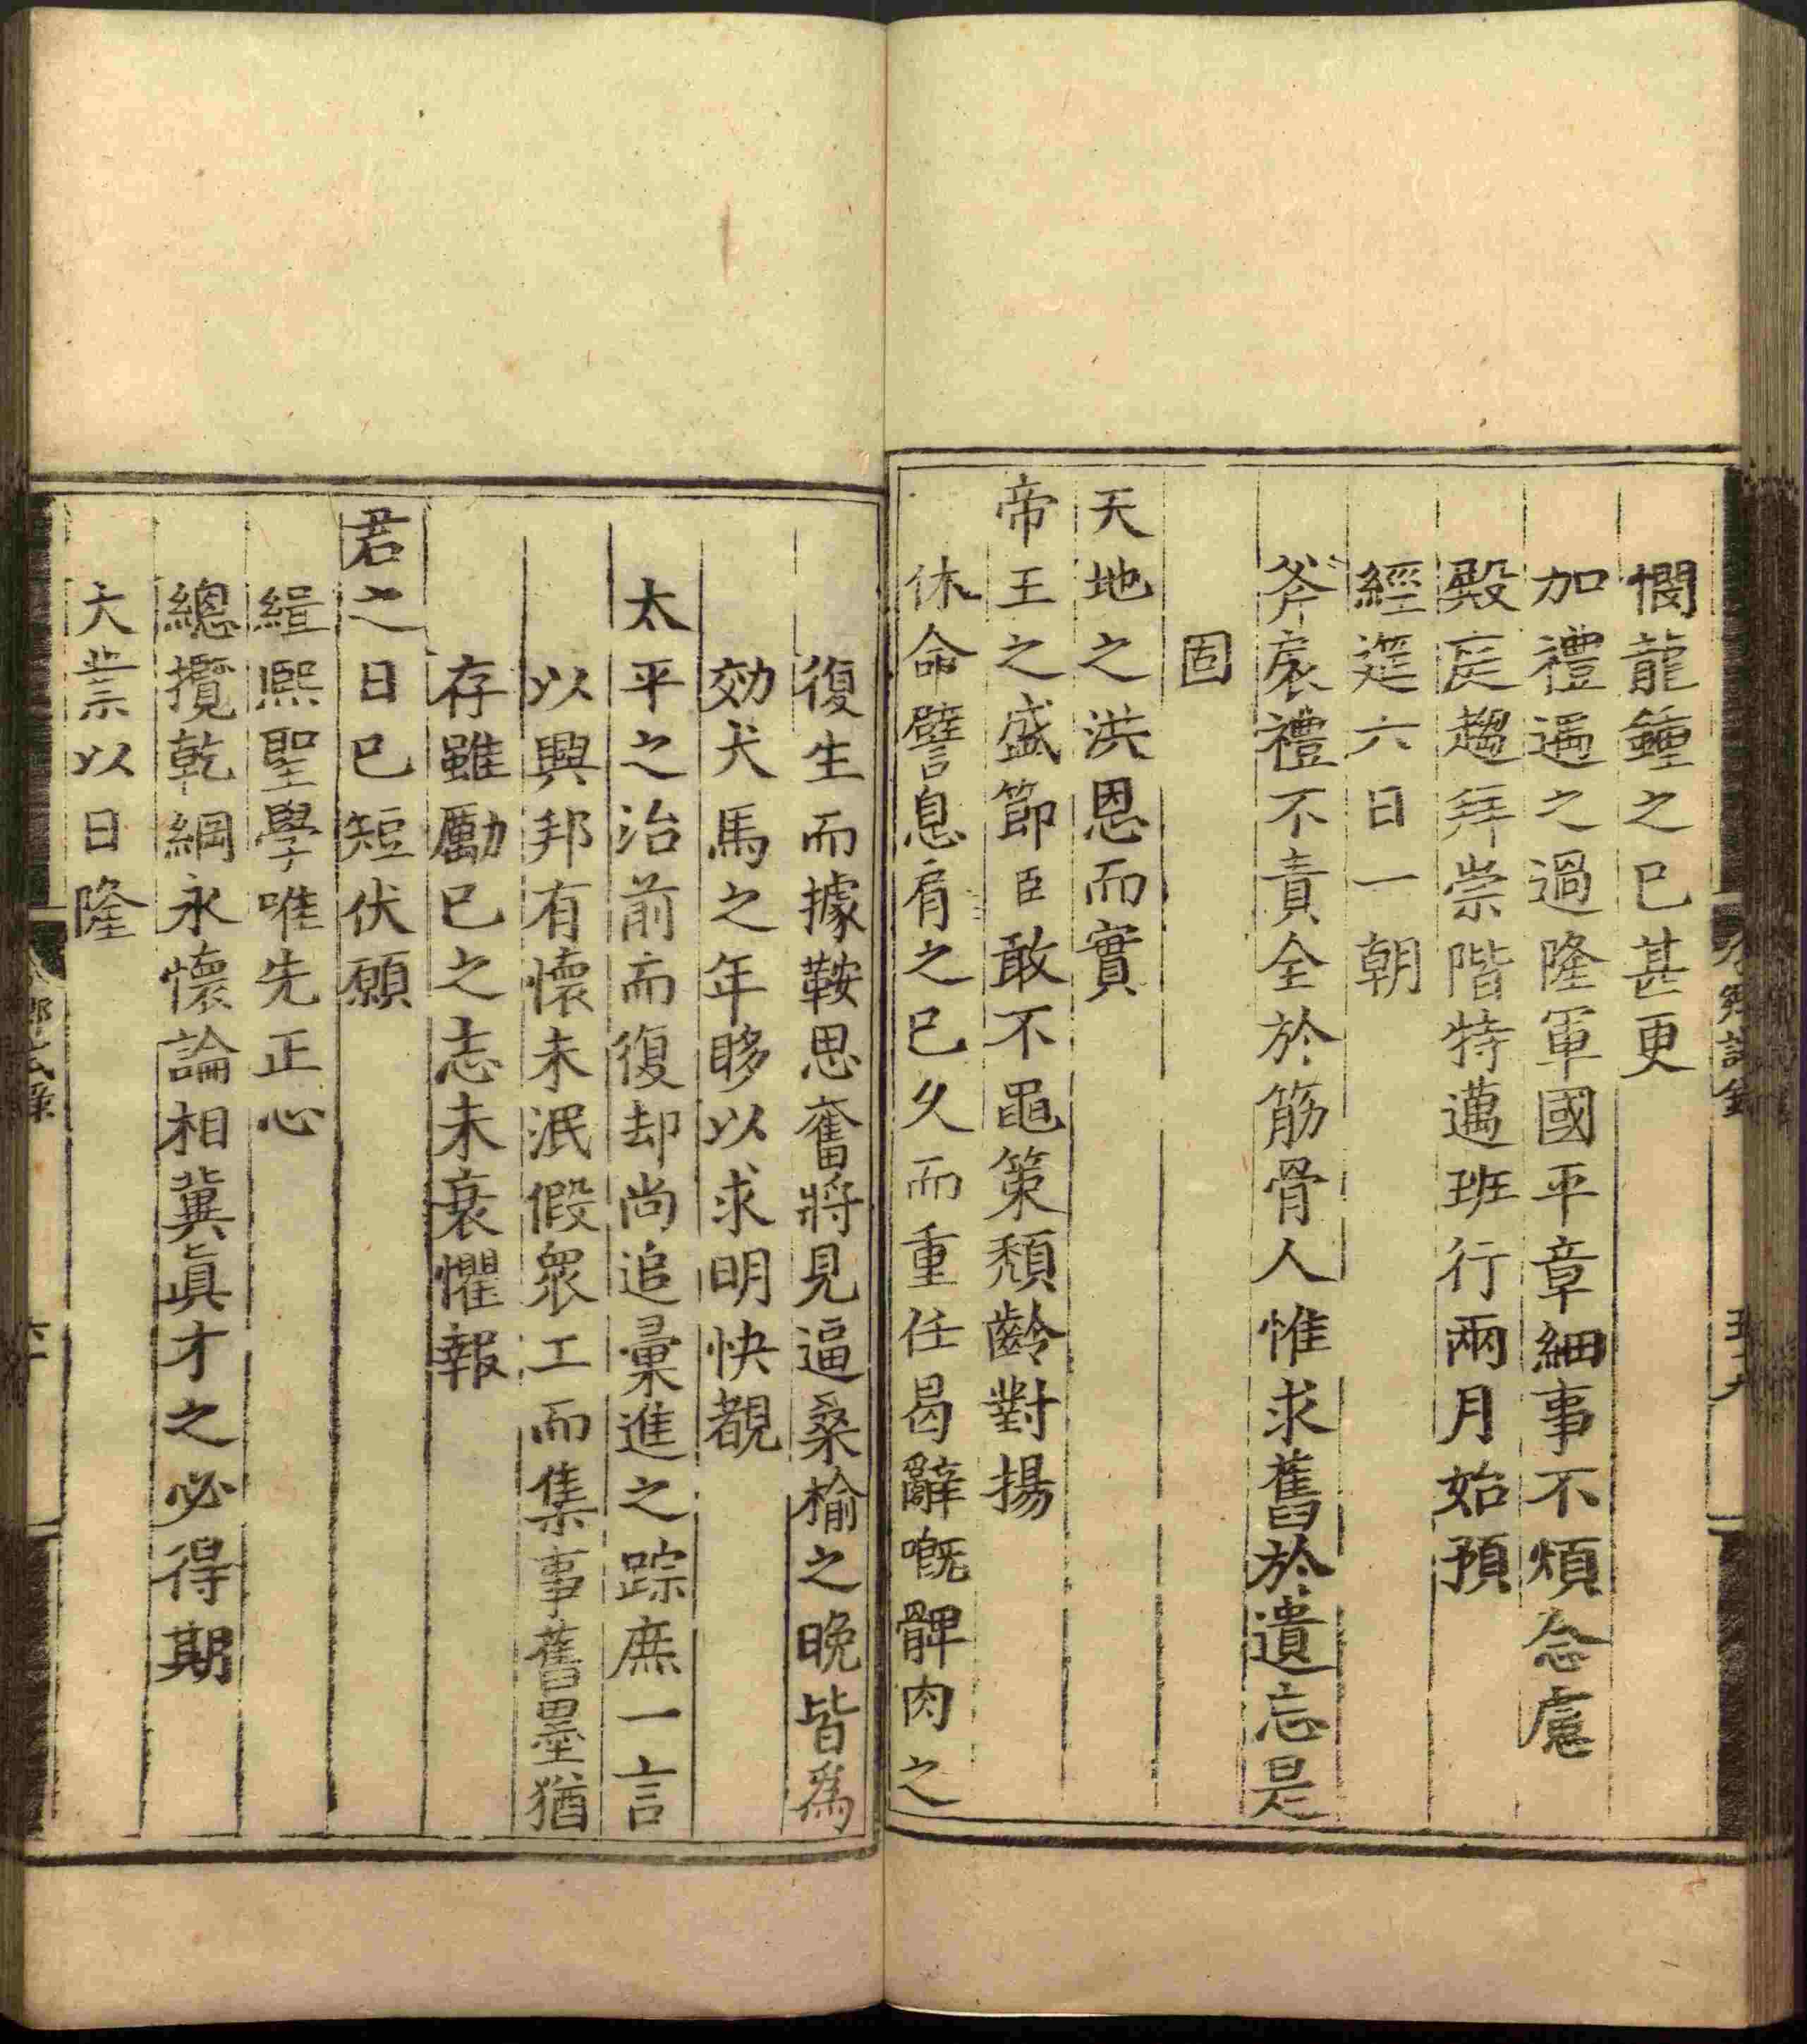 憫龍鍾之已甚更
加禮遇之過隆軍國平章細事不煩念慮
殿扆趨拜崇階特邁班行兩月始預
經筵六日一朝
斧扆禮不責全於筋骨人惟求舊於遺忘是
固
天地之洪恩而實
帝王之盛節臣敢不黽策頹齡對揚
休命譬息肩之已久而重任曷辭嘅髀肉之
復生而據鞍思奮將見逼桑榆之晚皆爲
効犬馬之年眵以求明快覩
太平之治前而復却尚追彙進之踪庶一言
以興邦有懷未泯假衆工而集事舊墨猶
存雖勵已之志未衰懼報
君之日已短伏願
緝熙聖學唯先正心
總攬乾綱永懷論相冀眞才之必得期
大業以日隆